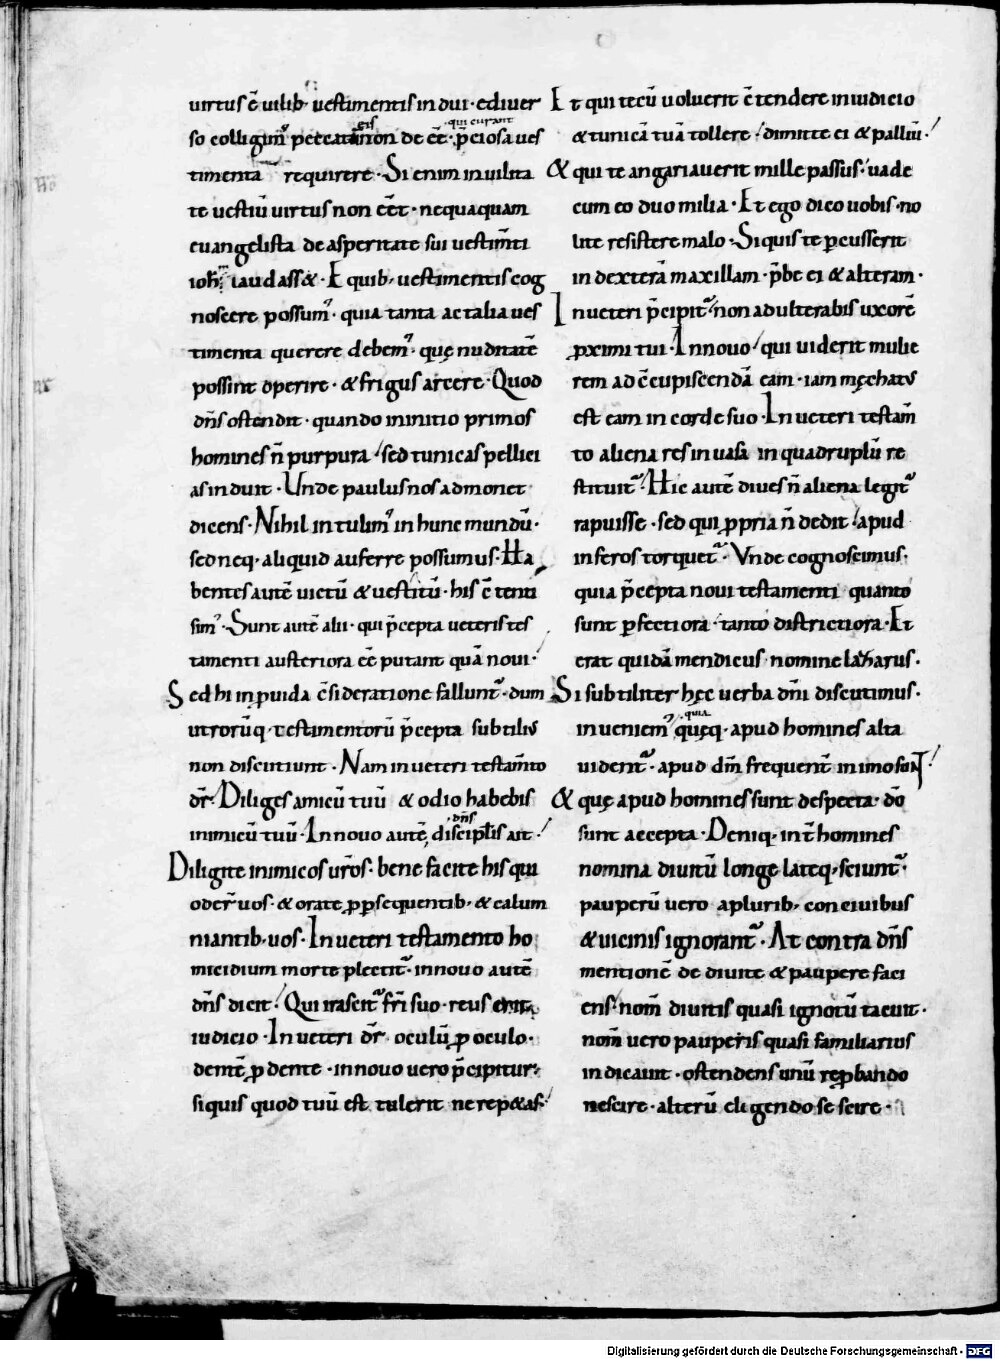 uirtus ē uilib; uestimentis indui · ediuer
so colligimꝰ peccatū eis non deēē · qui curant p̄ciosa ues
timenta requirere · Si enim in uilita
te uestiū uirtus non eēt · nequaquam
euangelista de asperitate sui uestim̄ti
ioħ laudass& · E quib; uestimentis cog
noscere possumꝰ · quia tanta ac talia ues
timenta querere debemꝰ · quę nuditatē
possint operire · & frigus arcere · Quod
dn̄s ostendit · quando in initio primos
homines n̄ purpura / sed tunicas pellici
as induit · Unde paulus nos admonet
dicens · Nihil intulimꝰ in hunc mundū ·
sed neq; aliquid auferre possumus · Ha
bentes autē uictū & uestitū · his c̄tenti
simꝰ · Sunt autē alii · qui p̄cepta ueteris tes
tamenti austeriora eē putant quā noui ·
Sed hi inpuida c̄sideratione fallunt᷑ · dum
utrorūq; testamentorū p̄cepta subtiliꝰ
non discutiunt · Nam in ueteri testam̄to
dr̄ · Diliges amicū tuū & odio habebis
inimicū tuū · In nouo autē dn̄s discipl̄is ait ·
Diligite inimicos ur̄os · bene facite his qui
oder̄ uos · & orate ꝓ ꝑsequentib; & calum
niantib; uos · In ueteri testamento ho
micidium morte plectit᷑ · in nouo autē
dn̄s dicit · Qui irascit᷑ fr̄i suo · reus erit
iudicio · In ueteri dr̄ · oculū ꝓ oculo ·
dentē ꝓ dente · in nouo uero p̄cipitur ·
si quis quod tuū est tulerit ne rep&as ·
Et qui tecū uoluerit c̄tendere in iudicio
& tunicā tuā tollere / dimitte ei & palliū ·
& qui te angariauerit mille passus · uade
cum eo duo milia · Et ego dico uobis · no
lite resistere malo · Si quis te ꝑcusserit
in dexterā maxillam · p̄be ei & alteram ·
In ueteri p̄cipit᷑ · non adulterabis uxorē
ꝓximi tui · In nouo / qui uiderit mulie
rem ad c̄cupiscendā eam · iam męchatꝰ
est eam in corde suo · In ueteri testam̄
to aliena res inuasa in quadruplū re
stituit᷑ · Hic autē diues n̄ aliena legit᷑
rapuisse · sed qui ꝓpria n̄ dedit / apud
inferos torquet᷑ · Unde cognoscimus ·
quia p̄cepta noui testamenti quanto
sunt ꝑfectiora · tanto districtiora · Et
erat quidā mendicus nomine lazarus ·
Si subtiliter hęc uerba dn̄i discutimus ·
inueniemꝰ · quia quęq; apud homines alta
uident᷑ · apud dm̄ frequent᷑ in imo sunt
& quę apud homines sunt despecta · dō
sunt accepta · Deniq; int̄ homines
nomina diuitū longe lateq; sciunt᷑ ·
pauperū uero a plurib; conciuibus
& uicinis ignorant᷑ · At contra dn̄s
mentionē de diuite & paupere faci
ens · nom̄ diuitis quasi ignotū tacuit ·
nom̄ uero pauperis quasi familiarius
indicauit · ostendens unū reꝓbando
nescire · alterū eligendo se scire ·
Digitalisierung gefördert durch die Deutsche Forschungsgemeinschaft - DFG